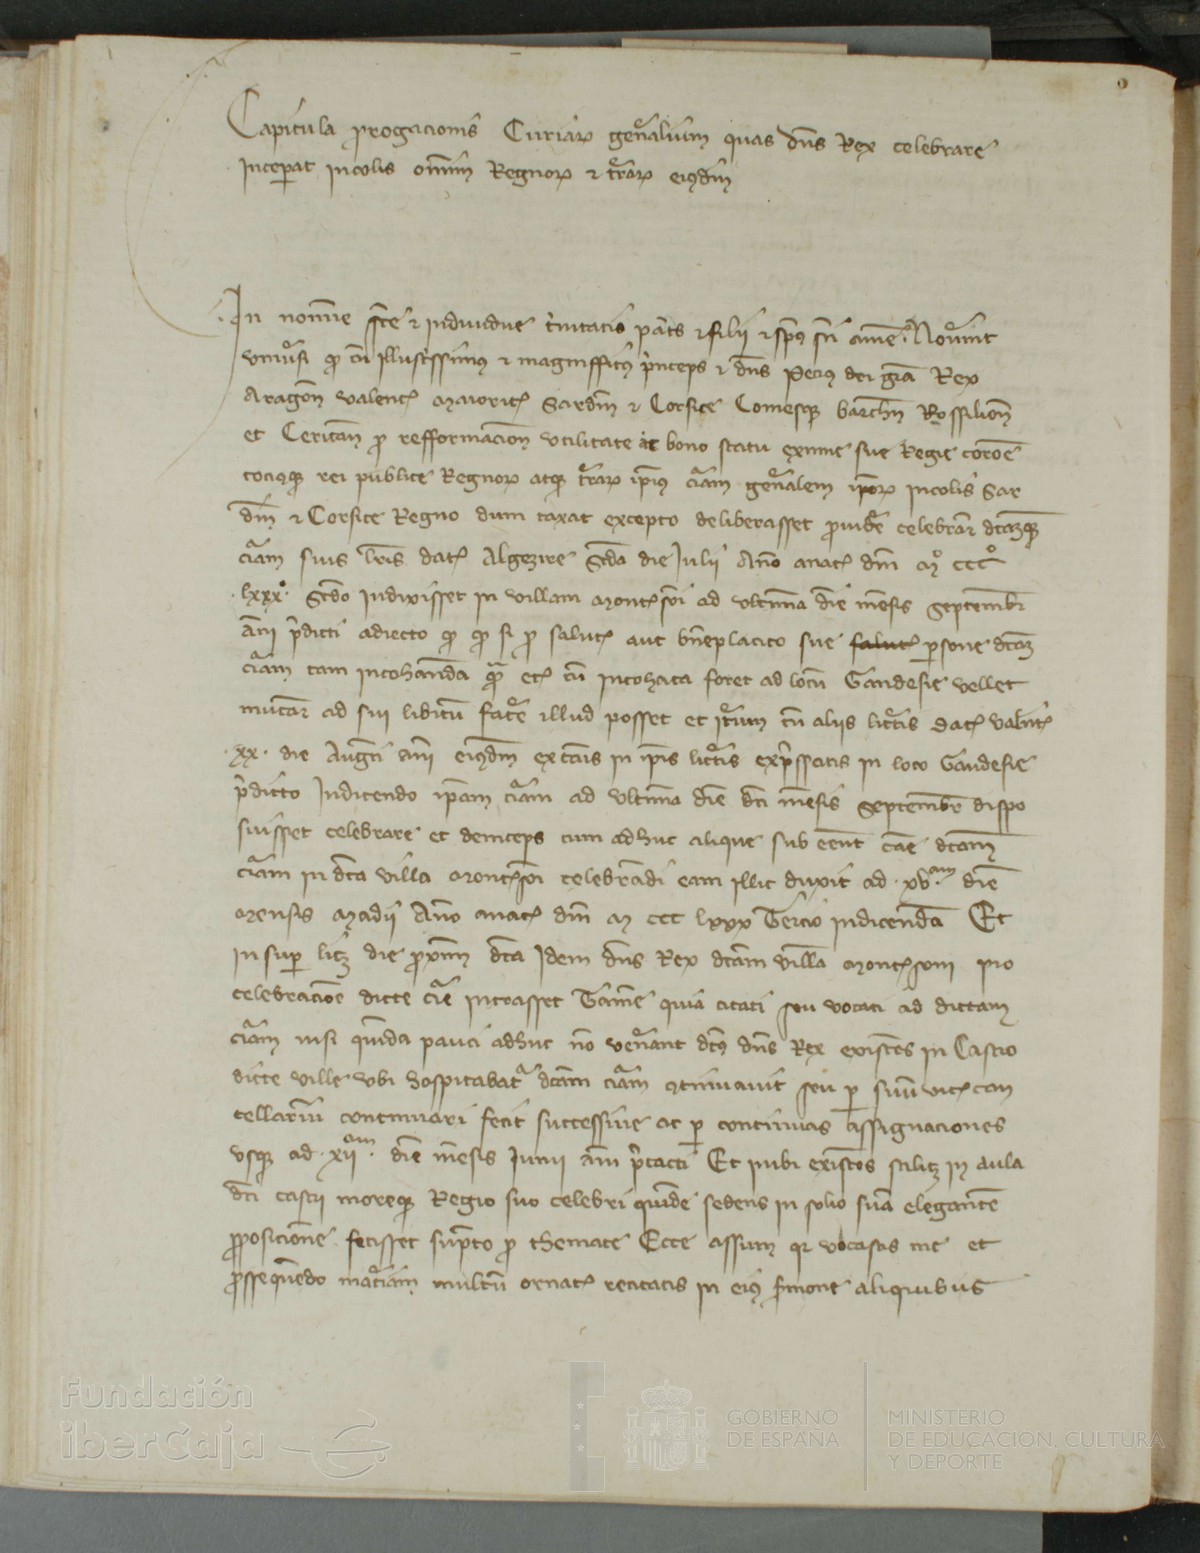 Capitula prorogacionis Curiar genalium quas dns Rex celebrare
Inceperat incolis omim Regnor & trar eiusdm
In nomine sce & individue trinitatis patris & filii & spus sti amen Noverint
universi q cu illustrissimus & magnifficus princeps & dns Petrus dei gra Rex
Aragon Valent Maioric Sardin & Corsice Comesq Barchn Rossilion
et Ceritan p refformacion utilitate ac bono statu eximie sue Regie corone
tociusq rei publice Regnor atq trar ipius curiam genalem ipor incolis Sar
din & Corsice Regno dum taxat excepto deliberasset provide celebrar dctamq
curiam suis lris dat Algezire scda die Julii Ano anat dni Mº CCCº
lxxxº scdo indixisset in villam Montsoni ad ultima die mesis septembr
ani predicti adiecto q q si p salut aut bneplacito sue salut persone dctam
curiam tam incohanda qua et cu incohata foret ad locu Gandesie vellet
mutar ad sui libitu facere illud posset et iterum cu aliis litteris dat Valent
xx die Augusti ani eiusdm ex causis in ipis litteris expressatis in loco Gandesie
predicto indicendo ipam curiam ad ultima die dci mesis septembr dispo
suisset celebrare et deinceps cum adhuc alique sub eent cae dctam
curiam in dcta villa Montsoni celebradi eam illic duxit ad xvam die
mensis Madii Ano anat dni M CCC lxxx tercio indicenda Et
insuper licz die proxim dcta idem dns Rex dctam villa Montsoni pro
celebracioe dicte curie intrasset Tamen quia citati seu vocati ad dictam
curiam nisi quida pauci adhuc no venerant dcus dns Rex existes in Castro
dicte ville ubi hospitabatur dctam curiam continuavit seu per suu vice can
cellariu continuari fecit successive ac per continuas assignaciones
usq ad xiiam die mesis Junii ani pretacti Et inibi existes scilicz in aula
dci castri moreq Regio suo celebri quide sedens in solio sua elegante
proposicione fecisset supto p themate Ecce assum qr vocastis me et
prosseqendo materiam multu ornat recitatis in eius sermone aliquibus
Fundación
iberCaja
GOBIERNO
DE ESPAÑA
MINISTERIO
DE EDUCACIÓN, CULTURA
Y DEPORTE